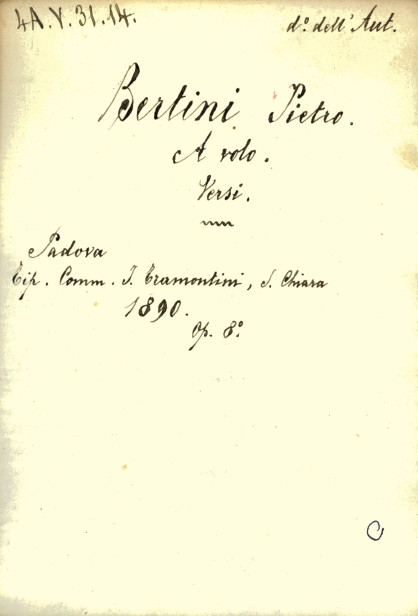 4A.Y.31.14.
d.º dell' Aut.
Bertini Pietro.
A volo.
Versi.
Padova
Tip. Comm. I. Tramontini, S. Chiara
1890.
Op. 8.º
C